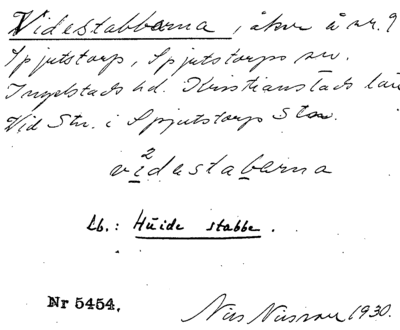 Videstabbarna, åker å nr. 9
Spjutstorp, Spjutstorps sn.
Ingelstads hd. Kristianstads län
Vid Stn. i Spjutstorps Stn.
vi²destabarna
Lb.: Hüide stabbe.
Nr 5454. Nils Nilsson 1930.